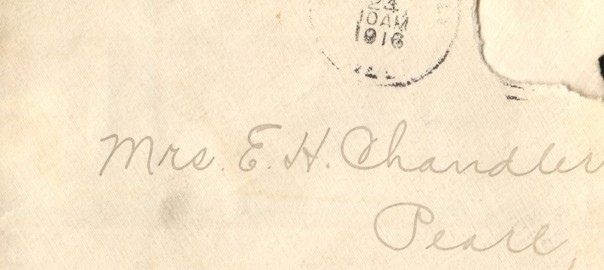 24
10AM
1916
Mrs. E. H. Chandler
Pearl,